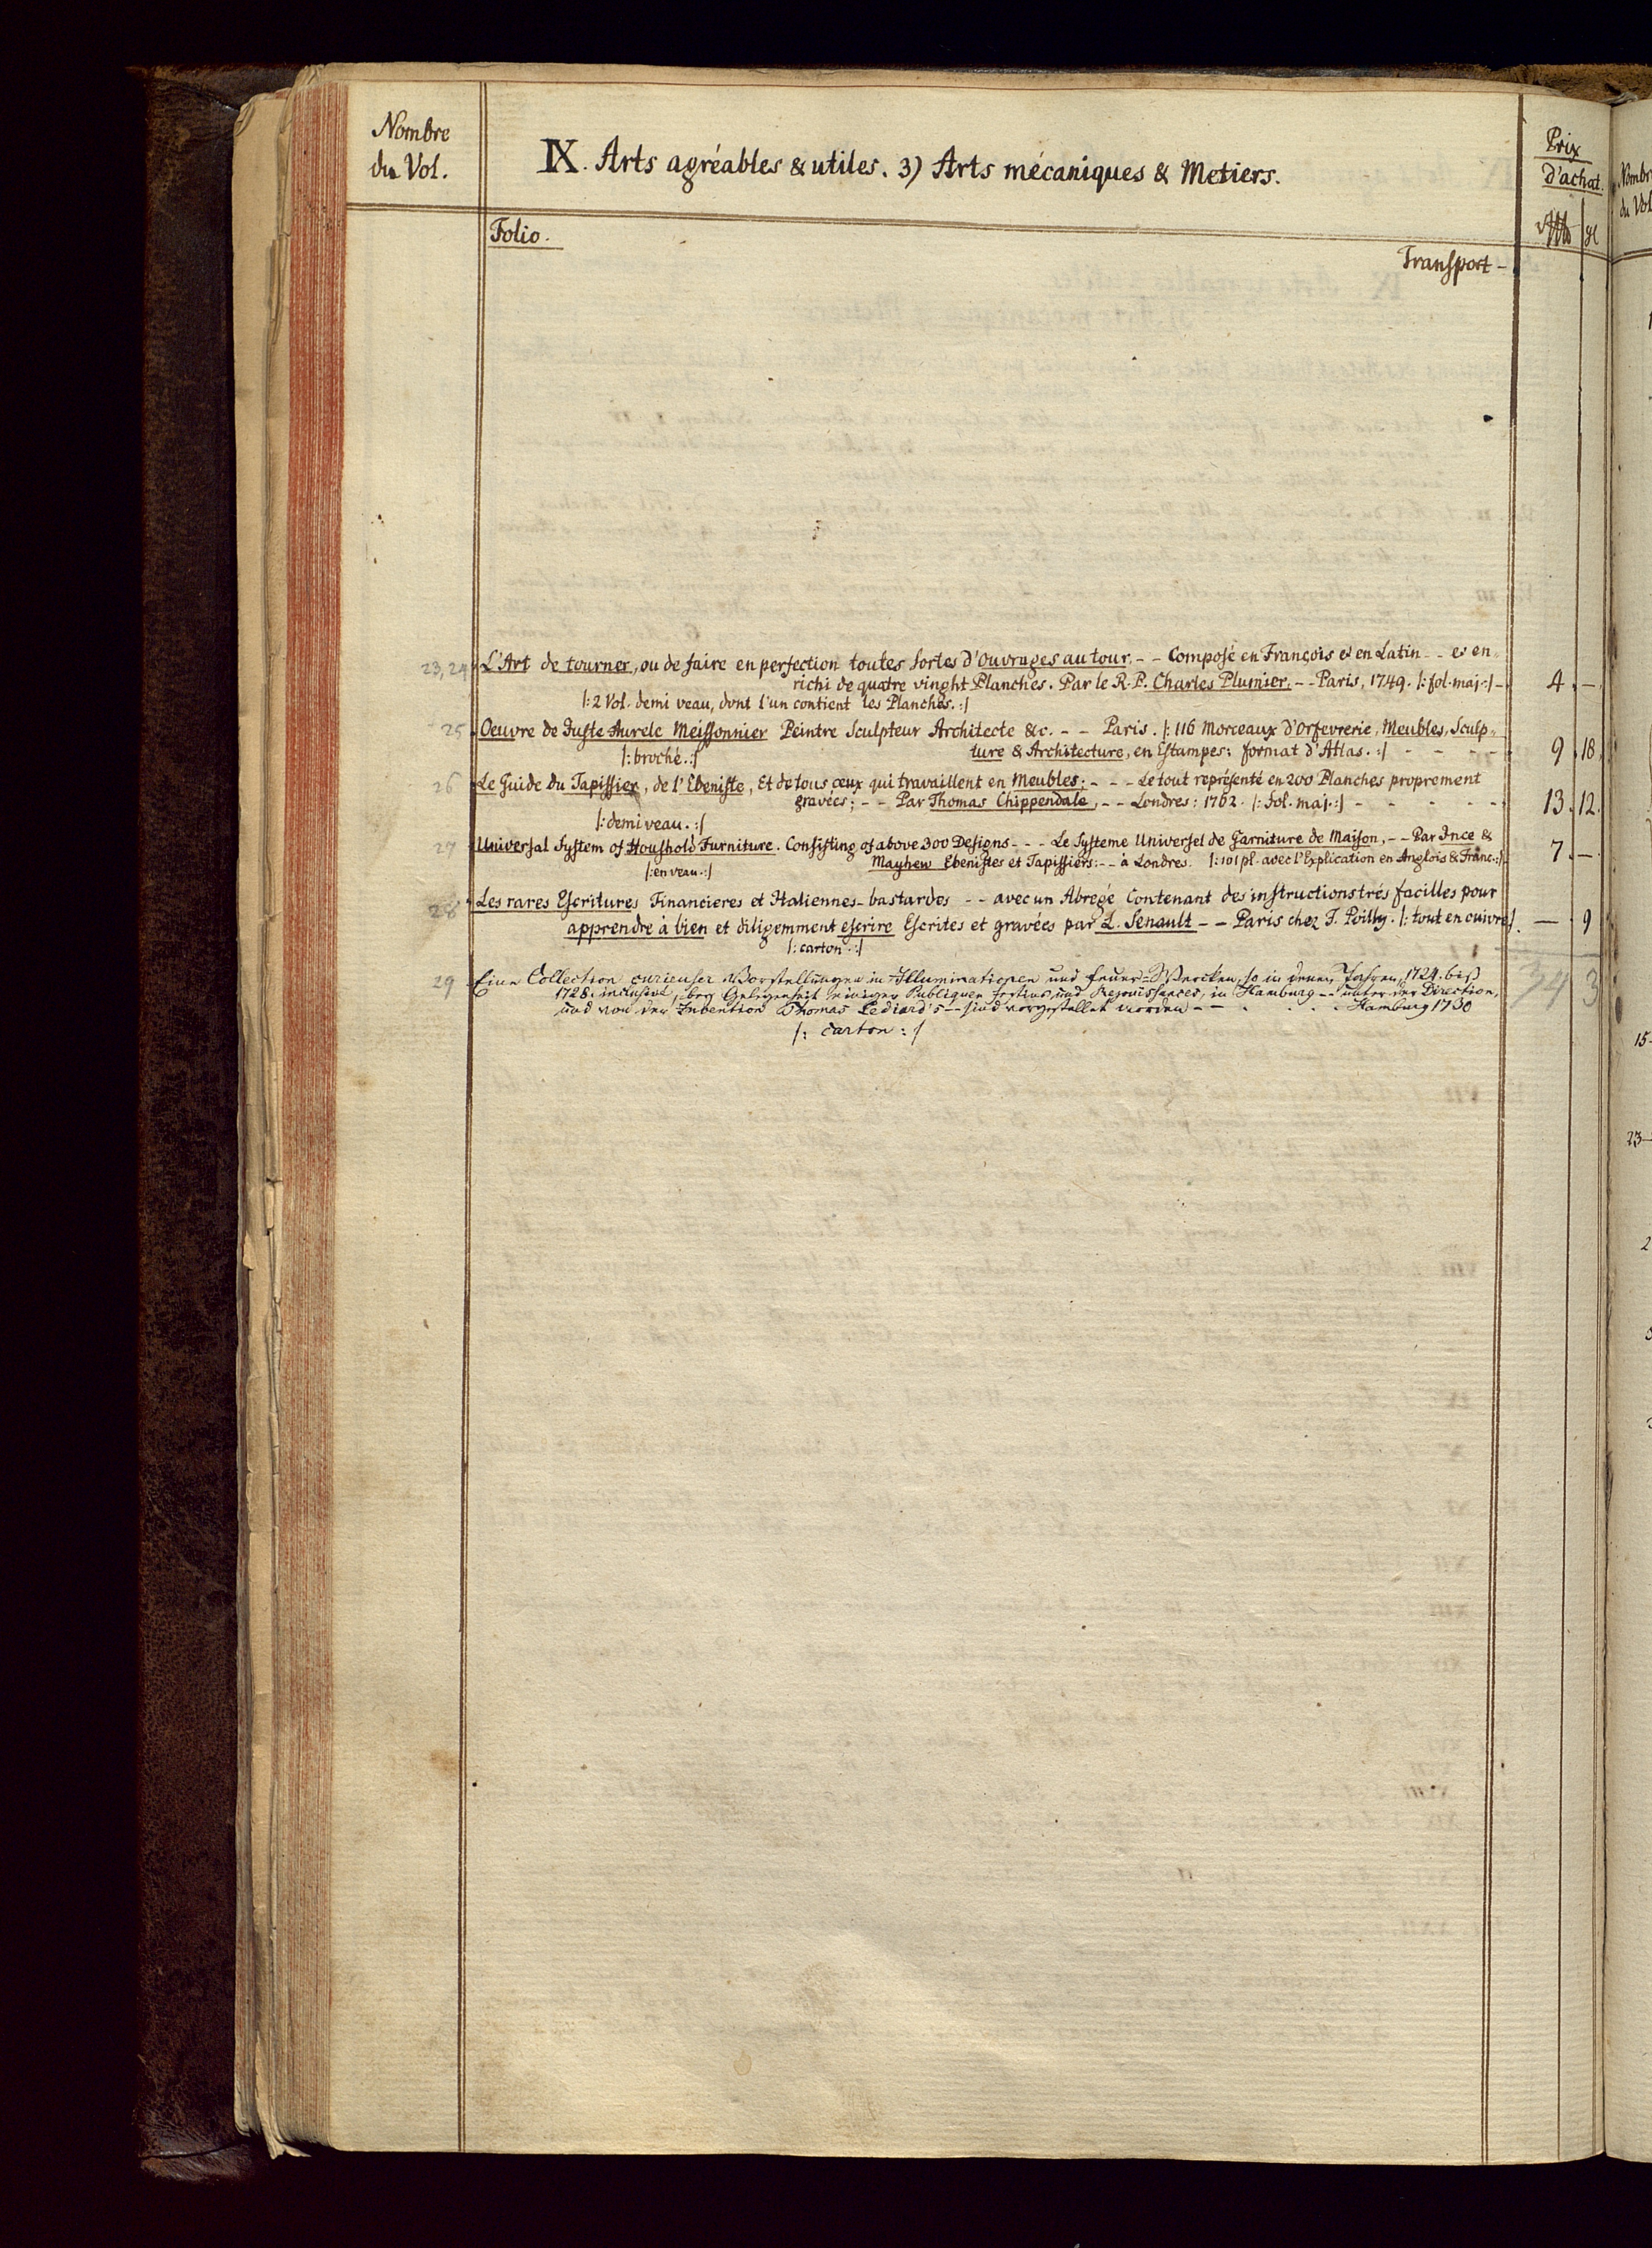 Nombre
du Vol.
IX. Arts agréables & utiles. 3) Arts mécaniques & Metiers.
Prix
d'achat.
Folio.
Transport -
23, 24 L'Art de tourner, ou de faire en perfection toutes Sortes d'Ouvrages au tour. - - Composé en François et en Latin - - et en-
richi de quatre vinght Planches. Par le R. P. Charles Plumier. - - Paris, 1749. |: fol. maj :| - 4. —
|: 2 Vol. demi veau, dont l'un contient les Planches. :|
25 Oeuvre de Juste Aurele Meissonnier Peintre Sculpteur Architecte &c. - - Paris. |: 116 Morceaux d'Orfevrerie, Meubles, Sculp-
ture & Architecture, en Estampes: format d'Atlas. :| - - - - 9. 18.
|: broché. :|
26 Le Guide du Tapissier, de l'Ebeniste, Et de tous ceux qui travaillent en Meubles; - - - Le tout représenté en 200 Planches proprement
gravées; - - Par Thomas Chippendale, - - Londres: 1762. |: fol. maj. :| - - - - - 13. 12.
|: demi veau. :|
27 Universal System of Houshold Furniture. Consisting of above 300 Designs - - - Le Systeme Universel de Garniture de Maison, - - Par Ince &
Mayhew Ebenistes et Tapissiers: - - à Londres. |: 101 pl. avec l'Explication en Anglois & Franc. :| 7. —
|: en veau. :|
28 Les rares Escritures Financieres et Italiennes-bastardes - - avec un Abregé Contenant des instructions trés facilles pour
apprendre à bien et diligemment escrire Escrites et gravées par L. Senault - - Paris chez F. Poilly. |: tout en cuivre :|. — 9
|: carton. :|
29 Eine Collection curieuser Vorstellungen in Illuminationen und Feuer-Wercken, so in denen Jahren, 1724. biß
1728. inclusive, bey Gelegenheit einiger Publiquen Festins und Rejouissances, in Hamburg -- unter der Direction,
und von der Invention Thomas Lediard's -- sind vorgestellet worden - - . . . . Hamburg 1730
|: carton :|
34 3
Nombre
du Vol
15-
23-
2